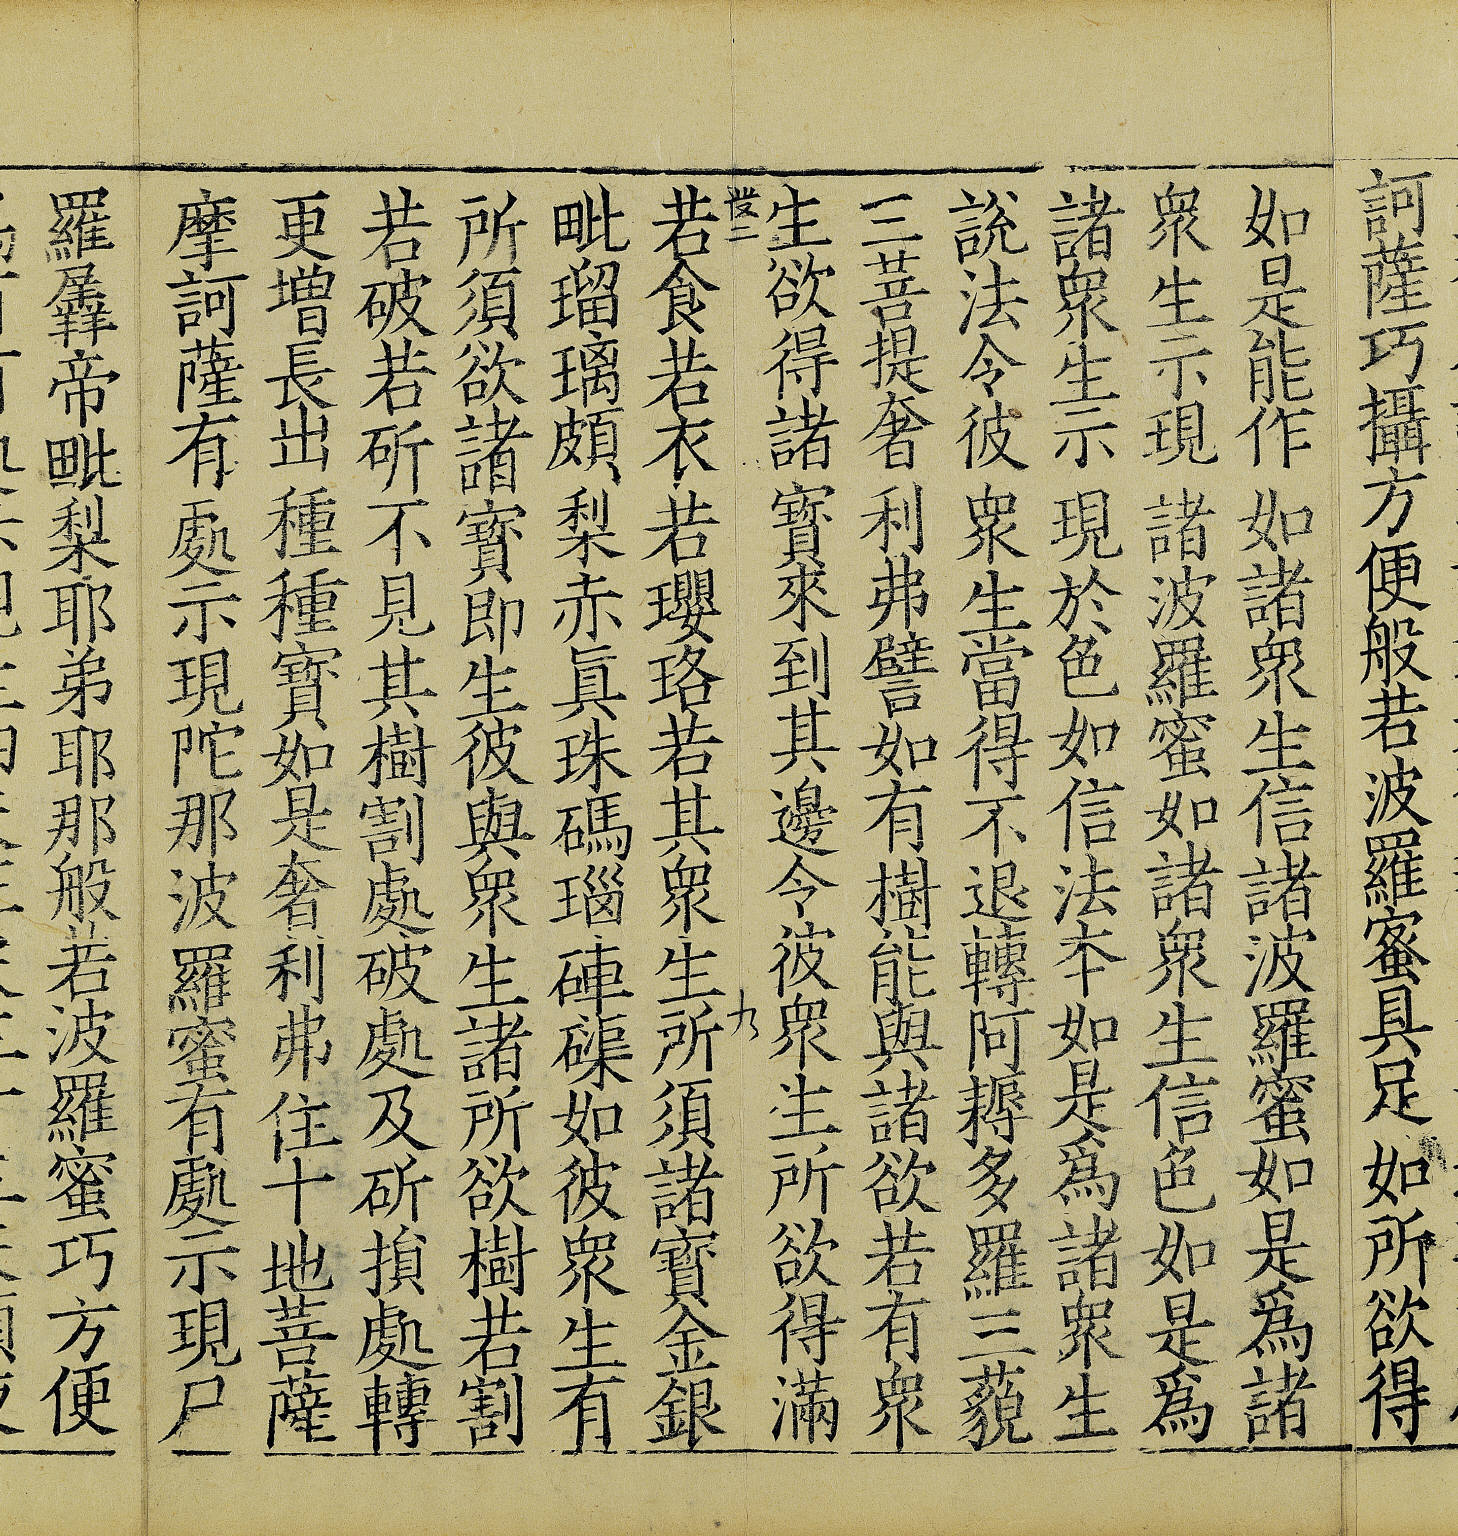 訶薩巧攝方便般若波羅蜜具足如所欲得
如是能作如諸衆生信諸波羅蜜如是爲諸
衆生示現諸波羅蜜如諸衆生信色如是爲
諸衆生示現於色如信法夲如是爲諸衆生
說法令彼衆生當得不退轉阿耨多羅三藐
三菩提奢利弗譬如有樹能與諸欲若有衆
生欲得諸寶來到其邊令彼衆生所欲得滿
世二 九
若食若衣若瓔珞若其衆生所須諸寶金銀
毗瑠璃頗梨赤眞珠碼瑙硨磲如彼衆生有
所須欲諸寶即生彼與衆生諸所欲樹若割
若破若斫不見其樹割處破處及斫損處轉
更增長出種種寶如是奢利弗住十地菩薩
摩訶薩有處示現陀那波羅蜜有處示現尸
羅羼帝毗梨耶弟耶那般若波羅蜜巧方便